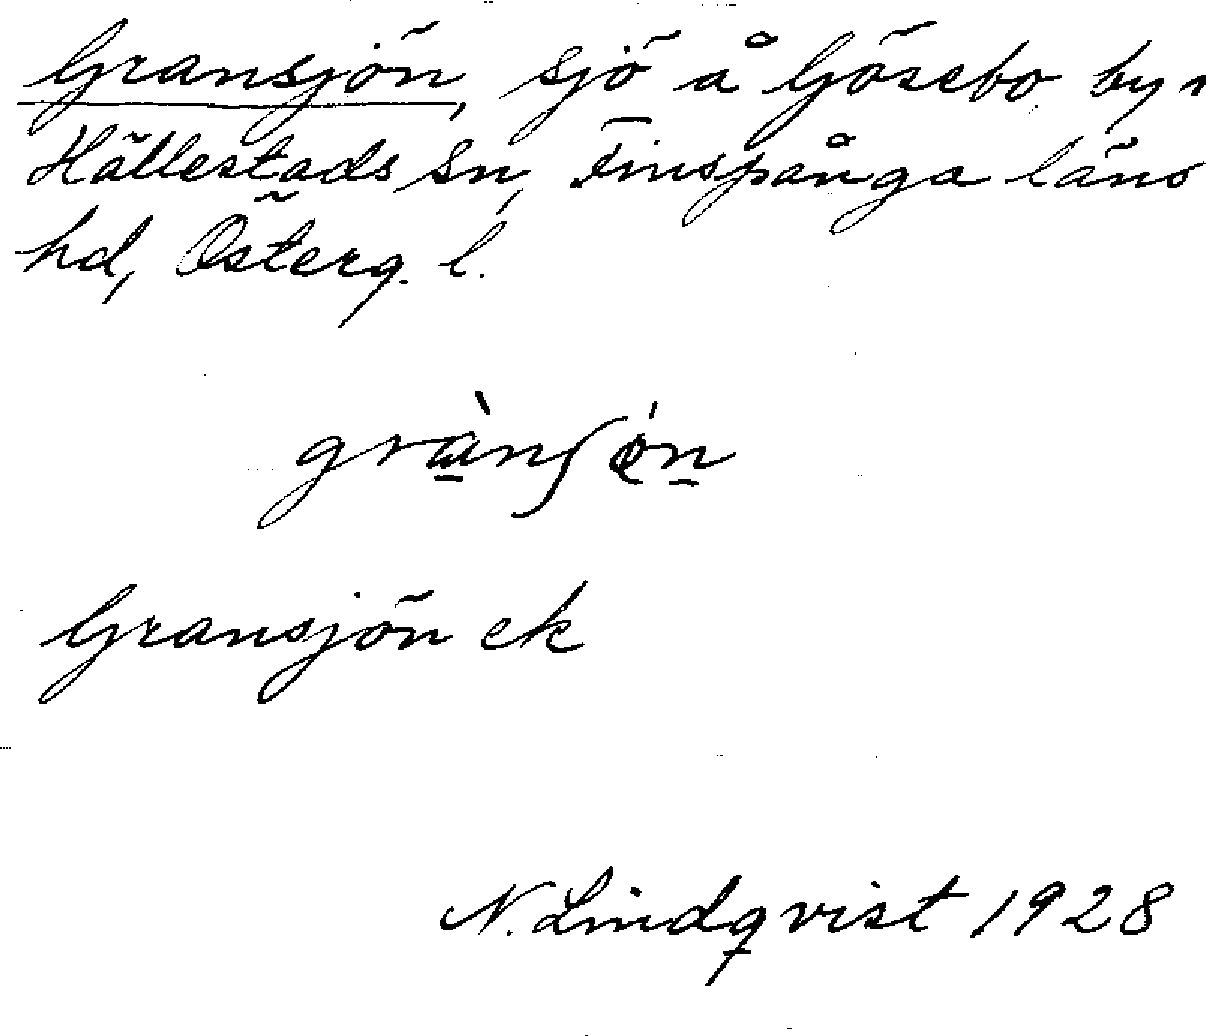 Gransjön, sjö å Gösebo by,
Hällestads sn, Finspånga läns
hd, Österg. l.
grànʃø̀n
Gransjön ek
N. Lindqvist 1928